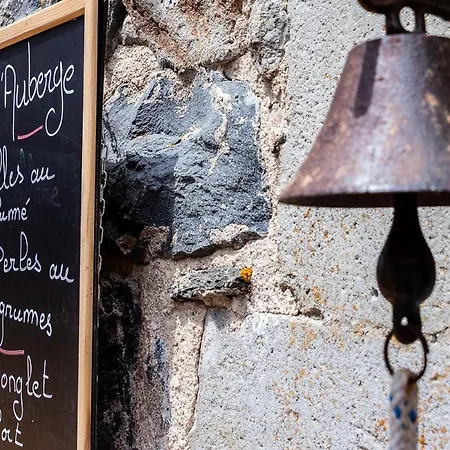 'Auberge
lles au
umé
Perles au
grumes
onglet
ort